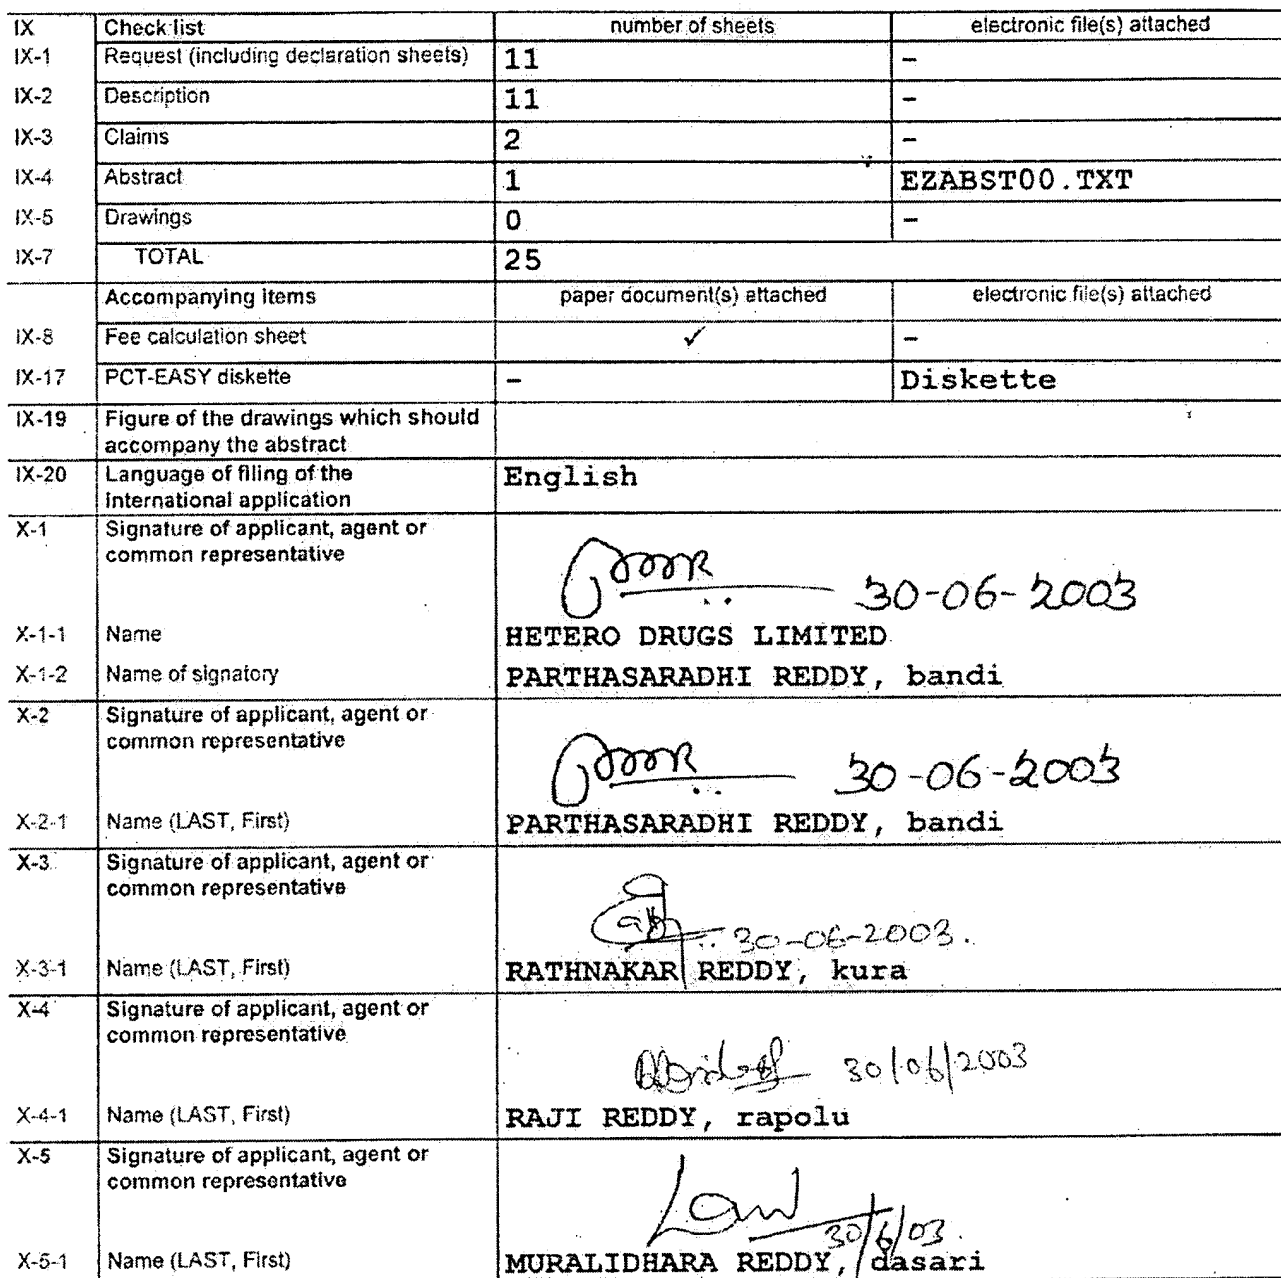 IX Check list number of sheets electronic file(s) attached
IX-1 Request (including declaration sheets) 11 –
IX-2 Description 11 –
IX-3 Claims 2 –
IX-4 Abstract 1 EZABST00.TXT
IX-5 Drawings 0 –
IX-7 TOTAL 25
Accompanying items paper document(s) attached electronic file(s) attached
IX-8 Fee calculation sheet ✓ –
IX-17 PCT-EASY diskette – Diskette
IX-19 Figure of the drawings which should
accompany the abstract
IX-20 Language of filing of the English
international application
X-1 Signature of applicant, agent or
common representative
30-06-2003
X-1-1 Name HETERO DRUGS LIMITED
X-1-2 Name of signatory PARTHASARADHI REDDY, bandi
X-2 Signature of applicant, agent or
common representative
30-06-2003
X-2-1 Name (LAST, First) PARTHASARADHI REDDY, bandi
X-3 Signature of applicant, agent or
common representative
30-06-2003.
X-3-1 Name (LAST, First) RATHNAKAR REDDY, kura
X-4 Signature of applicant, agent or
common representative
30/06/2003
X-4-1 Name (LAST, First) RAJI REDDY, rapolu
X-5 Signature of applicant, agent or
common representative
30/6/03.
X-5-1 Name (LAST, First) MURALIDHARA REDDY, dasari